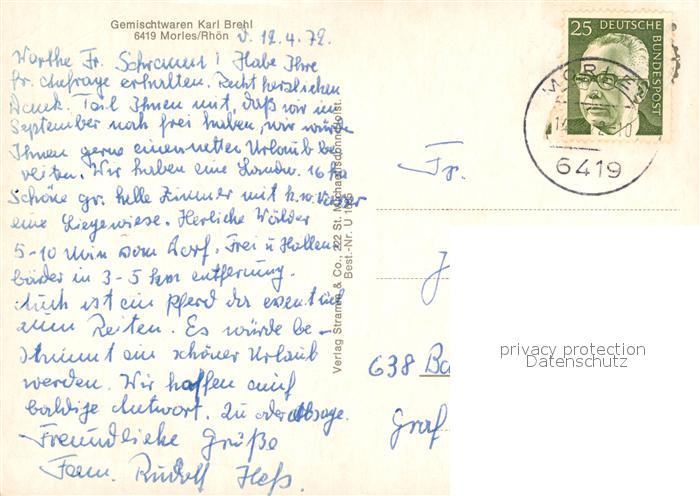 Gemischtwaren Karl Brehl
6419 Morles/Rhön
d. 12.4.72.
Werthe Fr. Schramm! Habe Ihre
fr. Anfrage erhalten. Recht herzlichen
Dank. Teil Ihnen mit, daß wir im
September noch frei haben, wir würde
Ihnen gerne einen netten Urlaub be
reiten. Wir haben eine Landw. 16 ha
Schöne gr. helle Zimmer mit k.w. Wasser
eine Liegewiese. Herliche Wälder
5-10 Min vom Dorf. Frei u Hallen
bäder in 3-5 km entfernung.
Auch ist ein Pferd da eventuel
zum Reiten. Es würde be-
stimmt ein schöner Urlaub
werden. Wir hoffen auf
baldige Antwort. Zu oder Absage.
Freundliche Grüße
Fam. Rudolf Heß.
Verlag Stramm & Co., 222 St. Michaelisdonn/Holst.
Best.-Nr. U
25 DEUTSCHE
BUNDESPOST
MORLES
6419
Fr.
J
638 Ba
Graf
privacy protection
Datenschutz